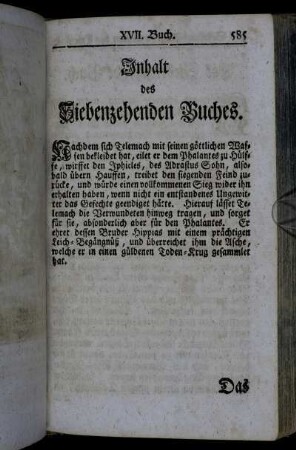 XVII. Buch. 585
Inhalt
des
Siebenzehenden Buches.
Nachdem sich Telemach mit seinen göttlichen Waf-
fen bekleidet hat, eilet er dem Phalantes zu Hülf-
fe, wirffet den Iphicles, des Adrastus Sohn, also-
bald übern Hauffen, treibet den siegenden Feind zu-
rücke, und würde einen vollkommenen Sieg wider ihn
erhalten haben, wenn nicht ein entstandenes Ungewit-
ter das Gefechte geendiget hätte. Hierauf lässet Te-
lemach die Verwundeten hinweg tragen, und sorget
für sie, absonderlich aber für den Phalantes. Er
ehret dessen Bruder Hippias mit einem prächtigen
Leich-Begängnüß, und überreichet ihm die Asche,
welche er in einen güldenen Toden-Krug gesammlet
hat.
Das